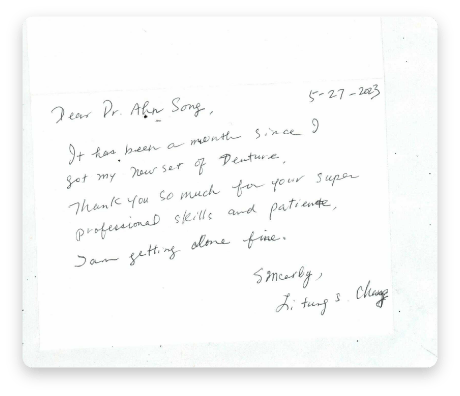 5-27-2023
Dear Dr. Ahn Song,
It has been a month since I
got my new set of Denture.
Thank you so much for your super
professional skills and patiente.
I am getting alone fine.
Sincerly,
Li tung S. Chang